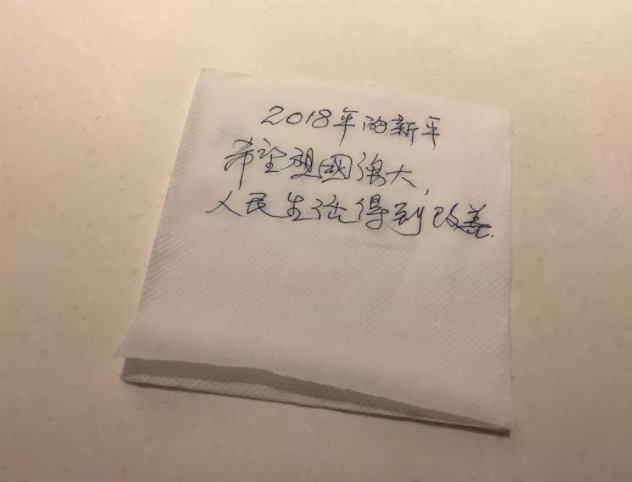 2018年的新年
希望祖國強大,
人民生活得到改善.